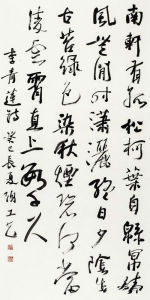 南軒有孤松柯葉自緜冪清
風無閒時瀟灑終日夕陰生
古苔綠色染秋煙碧何當
凌雲霄直上數千尺
李青蓮詩癸巳長夏